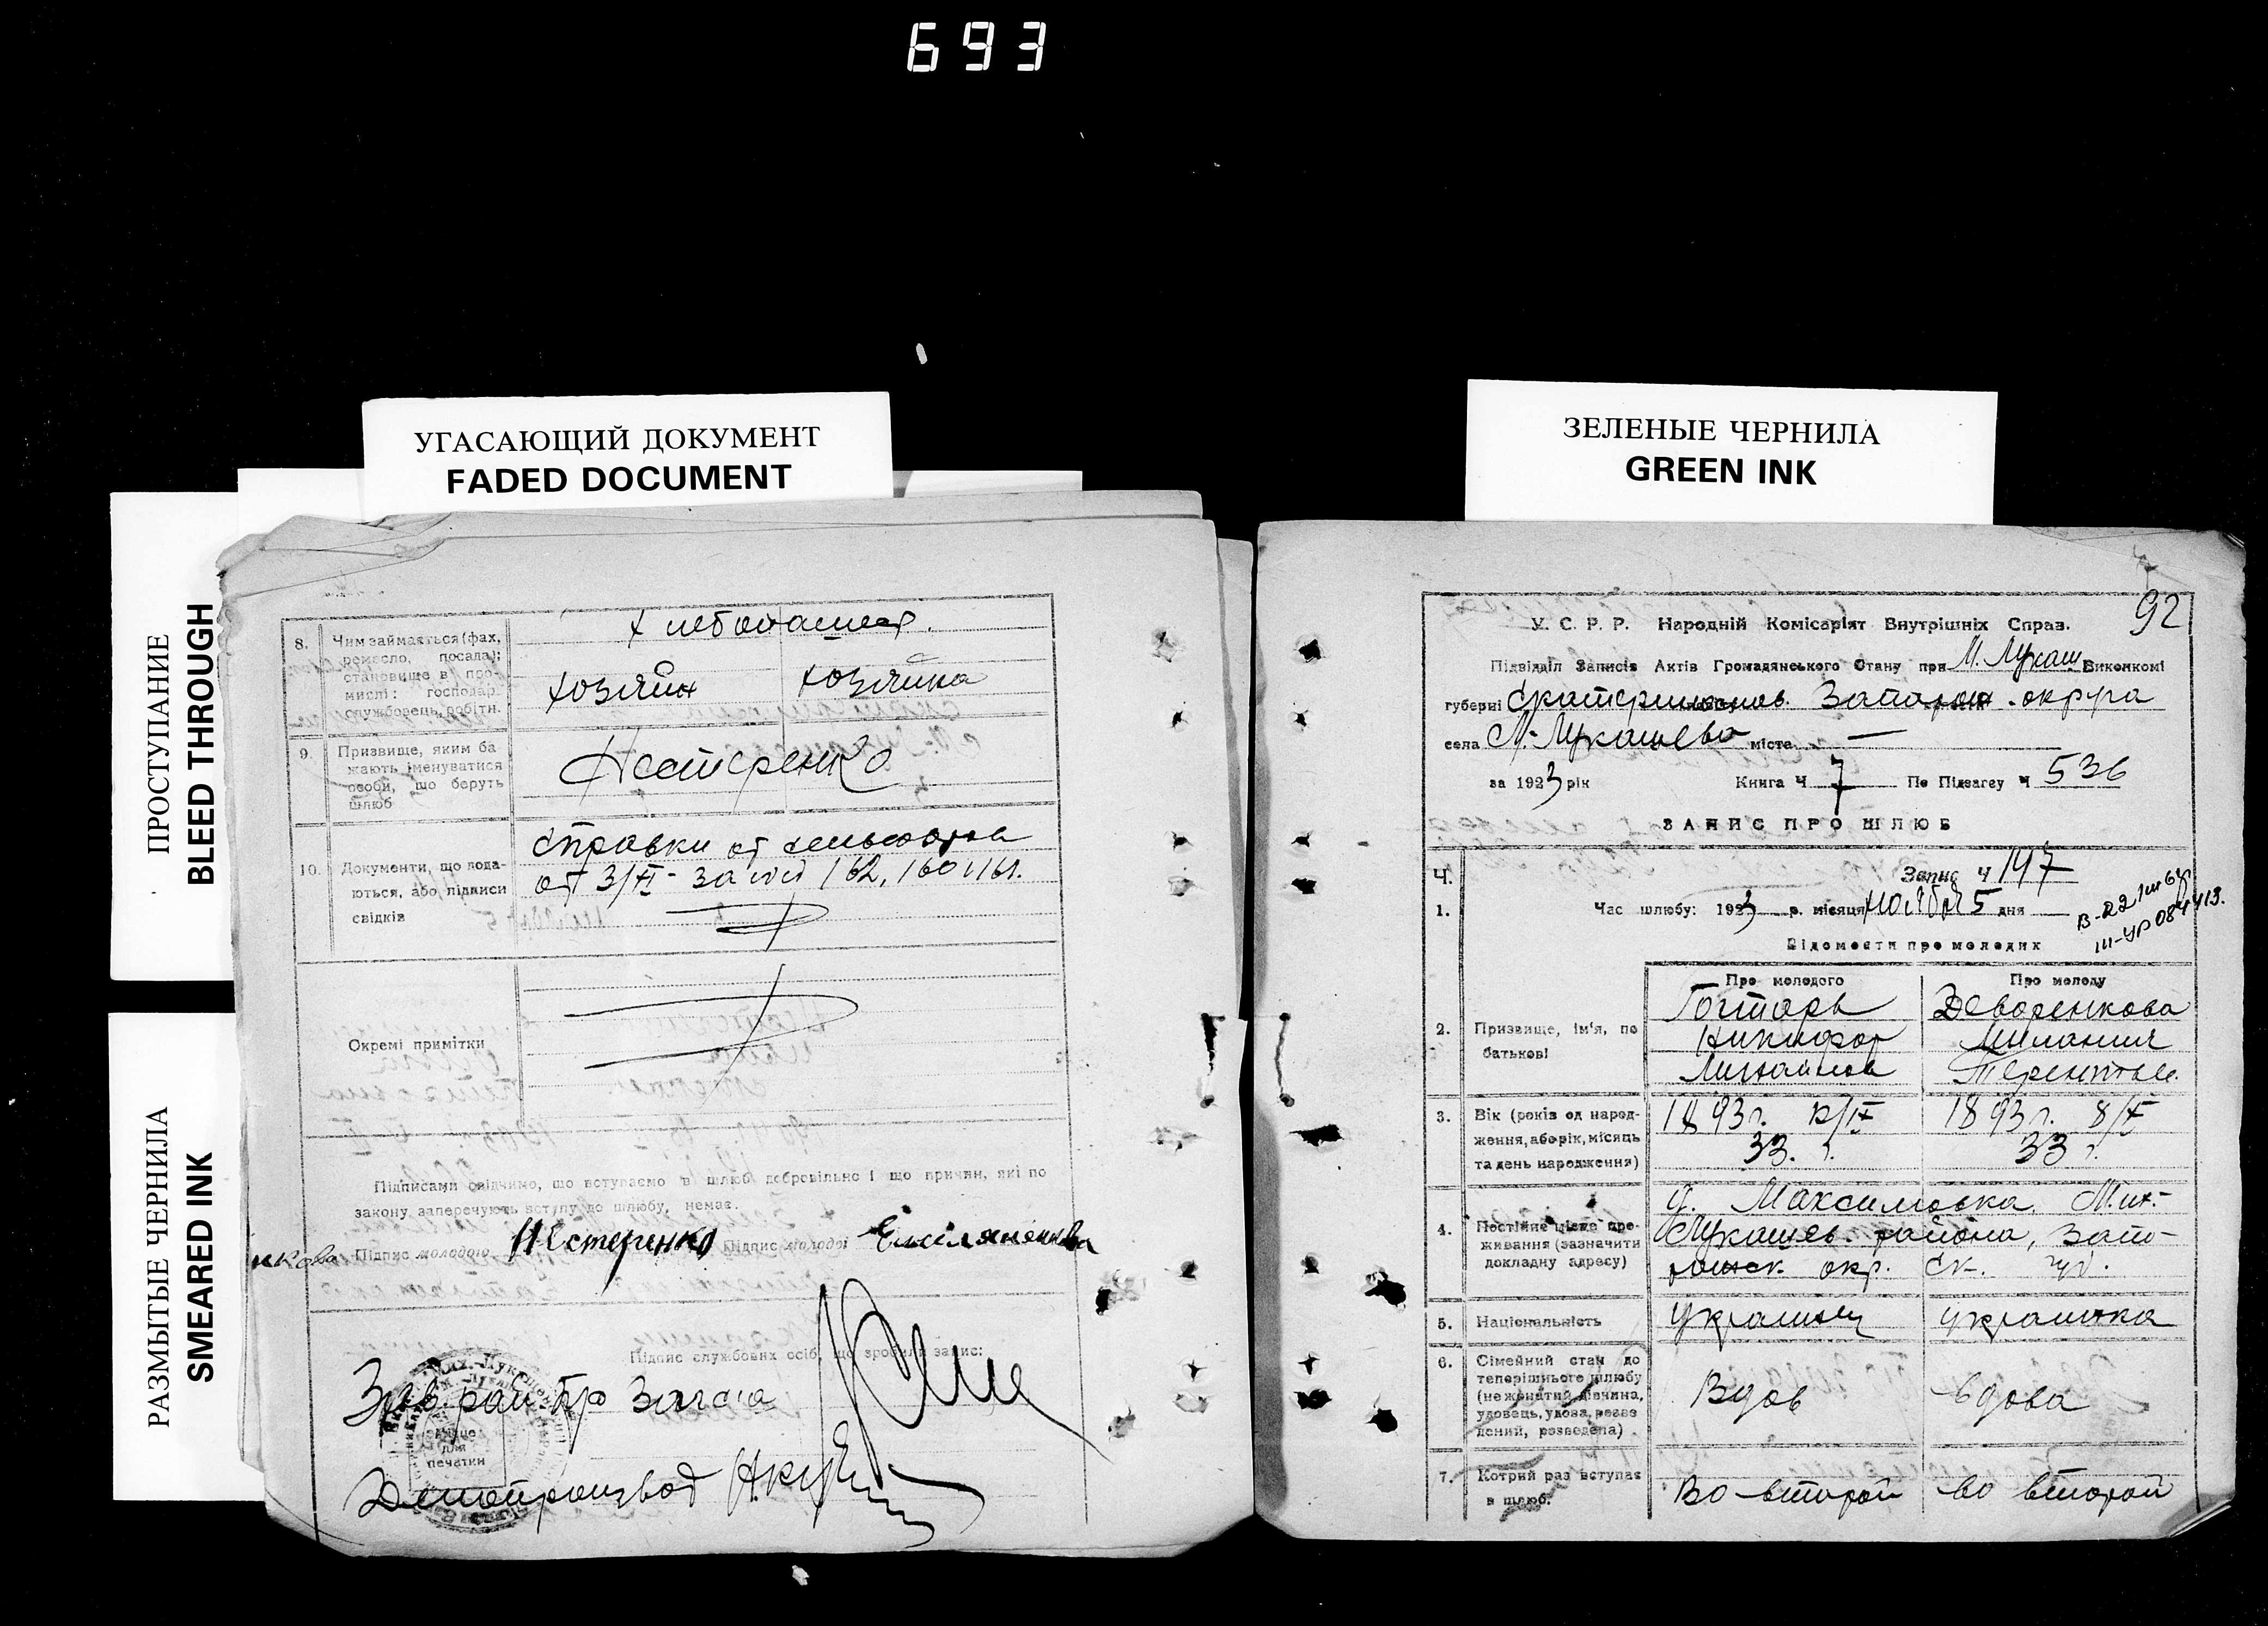 693
УГАСАЮЩИЙ ДОКУМЕНТ
FADED DOCUMENT
ПРОСТУПАНИЕ
BLEED THROUGH
РАЗМЫТЫЕ ЧЕРНИЛА
SMEARED INK
8. Чим займається (фах, ремесло, посала);
становище в промислі: господар.
службовець, робітн.
Хлебопашест.
хозяин хозяйка
9. Призвище, яким бажають іменуватися
особи, що беруть
шлюб
Нестеренко
10. Документи, що подаються, або підписи
свідків
Справки от сельсовета
от 3/XI - за №№ 162, 160 и 161.
Окремі примітки
Підписами свідчимо, що вступаємо в шлюб добровільно і що причин, які по
закону заперечують вступу до шлюбу, немає.
Підпис молодого Нестеренко Підпис молодої Емельяненкова
Підпис службових осіб, що зробили запис:
Зав. рай бро Загса
Місце
для
печатки
Делопроизвод
ЗЕЛЕНЫЕ ЧЕРНИЛА
GREEN INK
92
У. С. Р. Р. Народній Комісаріят Внутрішніх Справ.
Підвідділ Записів Актів Громадянського Стану при М. Лукаш Виконкомі
губерні Екатеринослав. Запорож. округа
села М-Лукашево міста —
за 1923 рік Книга Ч 7 По Підзагсу Ч 536
ЗАПИС ПРО ШЛЮБ
Ч. Запис Ч 147
1. Час шлюбу: 1923 р. місяця ноября 5 дня
Відомости про молодих
Про молодого Про молоду
2. Призвище, ім'я, по
батькові
Гостарь Деворенкова
Никифор Милания
Михайлов Терентьев.
3. Вік (років од народження, або рік, місяць
та день народження)
1893 г. 1893 г. 8/X
33 г. 33 г.
4. Постійне місце проживання (зазначити
докладну адресу)
д. Максимовка, Мих-
Лукашев. района, Запо-
рожск. окр. Ек. губ.
5. Національність
Украинец украинка
6. Сімейний стан до
теперішнього шлюбу
(не жонатий, дівчина,
удовець, удова, розведений, розведена)
Вдов вдова
7. Котрий раз вступає
в шлюб.
Во второй во второй